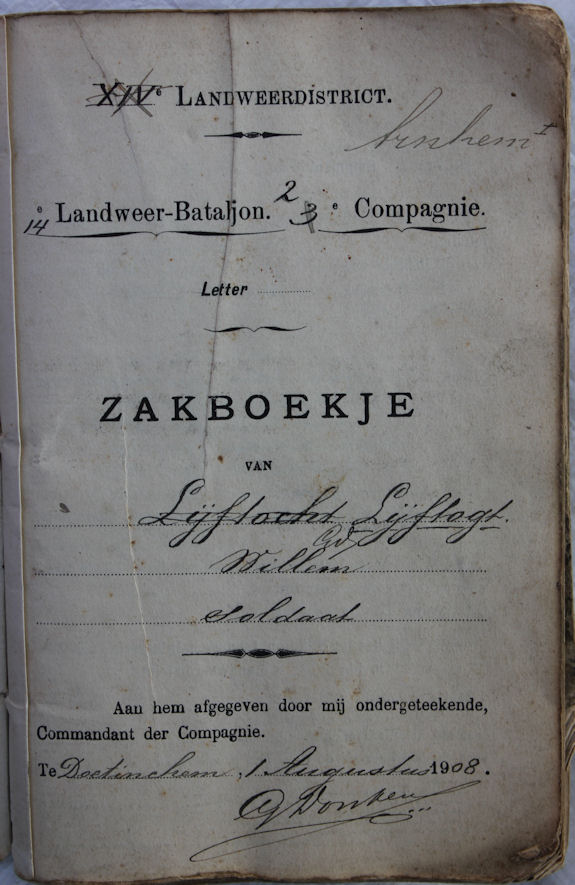 XIVe LANDWEERDISTRICT.
Arnhem I
14e Landweer-Bataljon. 2 3e Compagnie.
Letter
ZAKBOEKJE
VAN
Lijftocht Lijftogt.
Willem
Soldaat
Aan hem afgegeven door mij ondergeteekende,
Commandant der Compagnie.
Te Doetinchem, 1 Augustus 1908.